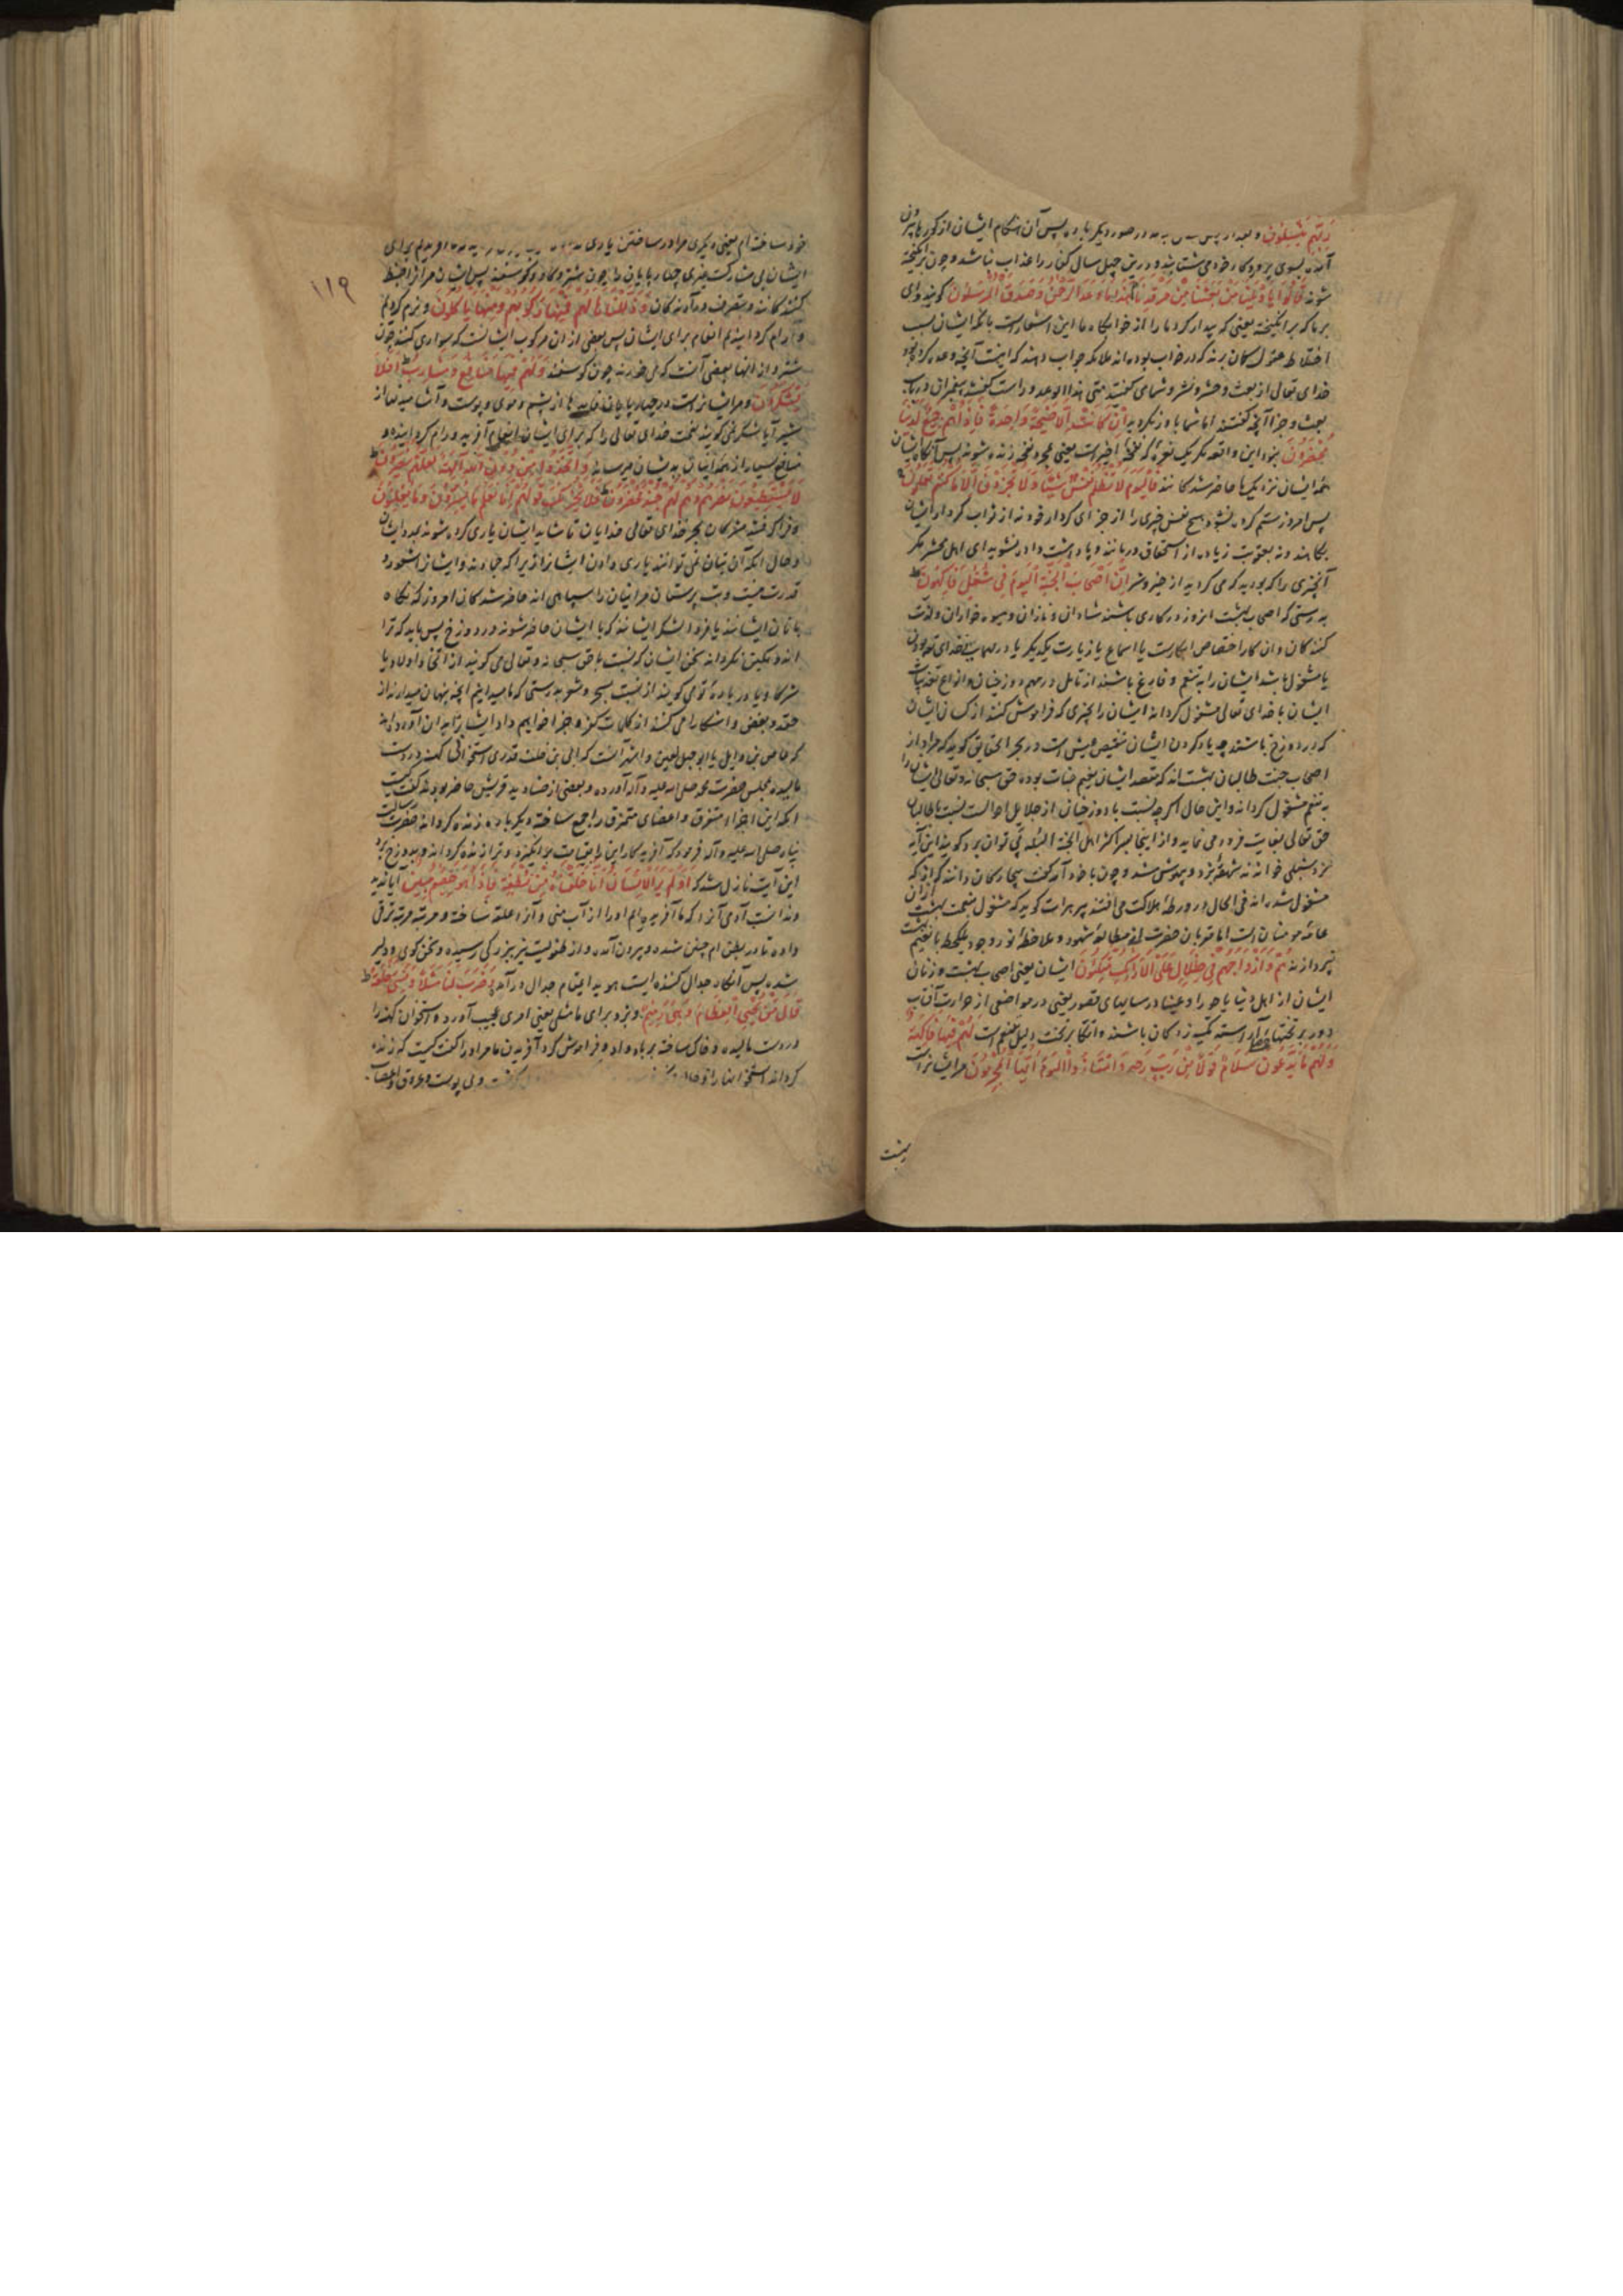 رَبِّهِمْ يَنْسِلُونَ و بعد از پس در صور دیگر باره پس آن هنگام ایشان از کورها بیرون
آیند بسوی پروردکار خود می شتابند و درین چهل سال کفار را عذاب نباشد و چون برانکیخته
شوند قَالُوا يَا وَيْلَنَا مَنْ بَعَثَنَا مِنْ مَرْقَدِنَا هٰذَا مَا وَعَدَ الرَّحْمٰنُ وَصَدَقَ الْمُرْسَلُونَ کویند وای
بر ما که برانکیخته یعنی که بیدار کرد ما را از خوابکاه ما این اشعارست بانکه ایشان بسبب
اختلاط عقول کمان برند که در خواب بوده اند ملائکه جواب دهند که اینست آنچه وعده کرده بود
خدای تعالی از بعث و حشر و نشر و شما می کفتید متی هذا الوعد و راست کفتند پیغمبران در باب
بعث و جزا آنچه کفتند اما شما باور نکردید اِنْ كَانَتْ اِلَّا صَيْحَةً وَاحِدَةً فَاِذَا هُمْ جَمِيعٌ لَدَيْنَا
مُحْضَرُونَ نبود این واقعه مکر یک نعره که نفخهٔ اخیرست یعنی بمجرد نفخه زنده شوند پس آنکاه ایشان
همه ایشان نزدیک ما حاضر شدکانند فَالْيَوْمَ لَا تُظْلَمُ نَفْسٌ شَيْئًا وَلَا تُجْزَوْنَ اِلَّا مَا كُنْتُمْ تَعْمَلُونَ
پس امروز ستم کرده نشود هیچ نفس چیزی را از جزای کردار خود نه از ثواب کردار ایشان
بکاهند و نه بعقوبت زیاده از استحقاق دریابند و پاداشت داده نشوید ای اهل محشر مکر
آنچیزی را که بودید که می کردید از خیر و شر اِنَّ اَصْحَابَ الْجَنَّةِ الْيَوْمَ فِي شُغُلٍ فَاكِهُونَ
بدرستی که اصحاب بهشت امروز در کاری باشند شادان و نازان و میوه خواران و لذت
کنندکان و ان کار اختصاص ابکارست یا استماع یا زیارت یکدیکر یا در مهمانی خدای تعالی بودن
یا مشغول باشند ایشان را به تنعم و فارغ باشند از تامل در مهم دوزخیان و انواع تعذیبات
ایشان یا خدای تعالی مشغول کرداند ایشان را بچیزی که فراموش کنند از کسان ایشان
که در دوزخ باشند چه یاد کردن ایشان تنغیص عیش است و در بحر الحقایق کوید که مراد از
اصحاب جنت طالبان بهشت اند که مقصد ایشان نعیم جنات بوده حق سبحانه و تعالی ایشان را
به تنعم مشغول کرداند و این حال اکرچه نسبت با دوزخیان از جلایل احوالست نسبت با طالبان
حق تعالی بغایت فرو می نماید و از اینجا سر اکثر اهل الجنة البله پی توان برد کویند این آیه
نزد شبلی خواندند شهقهٔ بزد و بیهوش شد و چون با خود آمد کفت بیچارکان دانند که از که
مشغول شده اند فی الحال در ورطهٔ هلاکت می افتند پیر هرات کوید که مشغول نعمت بهشت ازان
عامهٔ مومنان است اما مقربان حضرت از مطالعهٔ شهود و ملاحظهٔ نور وجود یکلحظه با نعیم بهشت
نپردازند هُمْ وَاَزْوَاجُهُمْ فِي ظِلَالٍ عَلَى الْاَرَائِكِ مُتَّكِئُونَ ایشان یعنی اصحاب بهشت و زنان
ایشان از اهل دنیا یا حورا و عینا در سایهای قصور یعنی در مواضعی از حرارت آفتاب
دور بر تختهاء آراسته تکیه زدکان باشند و اتکا بر تخت دلیل تنعم است لَهُمْ فِيهَا فَاكِهَةٌ
وَلَهُمْ مَا يَدَّعُونَ سَلَامٌ قَوْلًا مِنْ رَبٍّ رَحِيمٍ وَامْتَازُوا الْيَوْمَ اَيُّهَا الْمُجْرِمُونَ مر ایشانراست
بهشت
۱۱۹
خود ساخته ام یعنی دیکری مرا در ساختن یاری
ایشان بی مشارکت غیری چهارپایان را چون شتر و کاو و کوسفند پس ایشان مر آنرا ضبط
کنندکانند و متصرف در آن مالکان وَذَلَّلْنَاهَا لَهُمْ فَمِنْهَا رَكُوبُهُمْ وَمِنْهَا يَأْكُلُونَ و نرم کردیم
و رام کردانیدیم انعام برای ایشان پس بعضی از ان مرکوب ایشانست که سواری کنند چون
شتر و از انها بعضی آنست که می خورند چون کوسفند وَلَهُمْ فِيهَا مَنَافِعُ وَمَشَارِبُ اَفَلَا
يَشْكُرُونَ و مر ایشانراست در چهارپایان فایدها از پشم و موی و پوست و آشامیدنها از
شیر آیا شکر نمی کویند نعمت خدای تعالی را که برای ایشان انعام آفریده و رام کردانیده و
منافع بسیار از همه انها بدیشان میرسانند وَاتَّخَذُوا مِنْ دُونِ اللّٰهِ اٰلِهَةً لَعَلَّهُمْ يُنْصَرُونَ
لَا يَسْتَطِيعُونَ نَصْرَهُمْ وَهُمْ لَهُمْ جُنْدٌ مُحْضَرُونَ فَلَا يَحْزُنْكَ قَوْلُهُمْ اِنَّا نَعْلَمُ مَا يُسِرُّونَ وَمَا يُعْلِنُونَ
و فرا کرفتند مشرکان بجز خدای تعالی خدایان تا شاید ایشان یاری کرده شوند بمدد ایشان
و حال انکه آن بتان نمی توانند یاری دادن ایشانرا زیرا که جمادند و ایشانرا شعور و
قدرت نیست و بت پرستان مر بتان را سپاهی اند حاضر شدکان امروز که نکاه
بانان ایشانند یا فردا لشکر ایشانند که با ایشان حاضر شوند در دوزخ پس باید که ترا
اندوهکین نکرداند سخن ایشان که نسبت با حق سبحانه و تعالی می کویند از اتخاذ اولاد یا
شرکا و یا در بارهٔ تو می کویند از نسبت سحر و شعر بدرستی که ما میدانیم آنچه پنهان میدارند از
حقد و بغض و آشکارا می کنند از کلمات کفر و جزا خواهیم داد ایشانرا بدان آورده اند
که عاص بن وایل یا ابوجهل لعین و اشهر آنست که ابی بن خلف قدری استخوانی کهنه در دست
مالیده بمجلس حضرت محمد صلی الله علیه و آله آورده و بعضی از صنادید قریش حاضر بودند کفت کیست
انکه این اجزاء متفرق و اعضای متمزق را جمع ساخته دیکر باره زنده کرداند حضرت رسالت
پناه صلی الله علیه و آله فرمود که آفریدکار این را بقیامت برانکیزد و ترا زنده کرداند و بدوزخ برد
این آیت نازل شد که اَوَلَمْ يَرَ الْاِنْسَانُ اَنَّا خَلَقْنَاهُ مِنْ نُطْفَةٍ فَاِذَا هُوَ خَصِيمٌ مُبِينٌ آیا ندید
و ندانست آدمی آنرا که ما آفریده ایم او را از آب منی و آنرا علقه ساخته و مرتبه مرتبه ترقی
داده تا در بطن ام چنین شده و بیرون آمده و از طفولیت نیز ببزرکی رسیده و سخن کوی و دلیر
شده پس آنکاه جدال کننده ایست هویدا بمقام جدال در آمده وَضَرَبَ لَنَا مَثَلًا وَنَسِيَ خَلْقَهُ
قَالَ مَنْ يُحْيِي الْعِظَامَ وَهِيَ رَمِيمٌ و بزد برای ما مثلی یعنی امری عجیب آورده استخوان کهنه را
در دست مالیده و خاک ساخته بر باد داد و فراموش کرد آفریدن ما مر او را کفت کیست که زنده
کرداند استخوانها را و حال و بی پوست و عروق و اعصاب